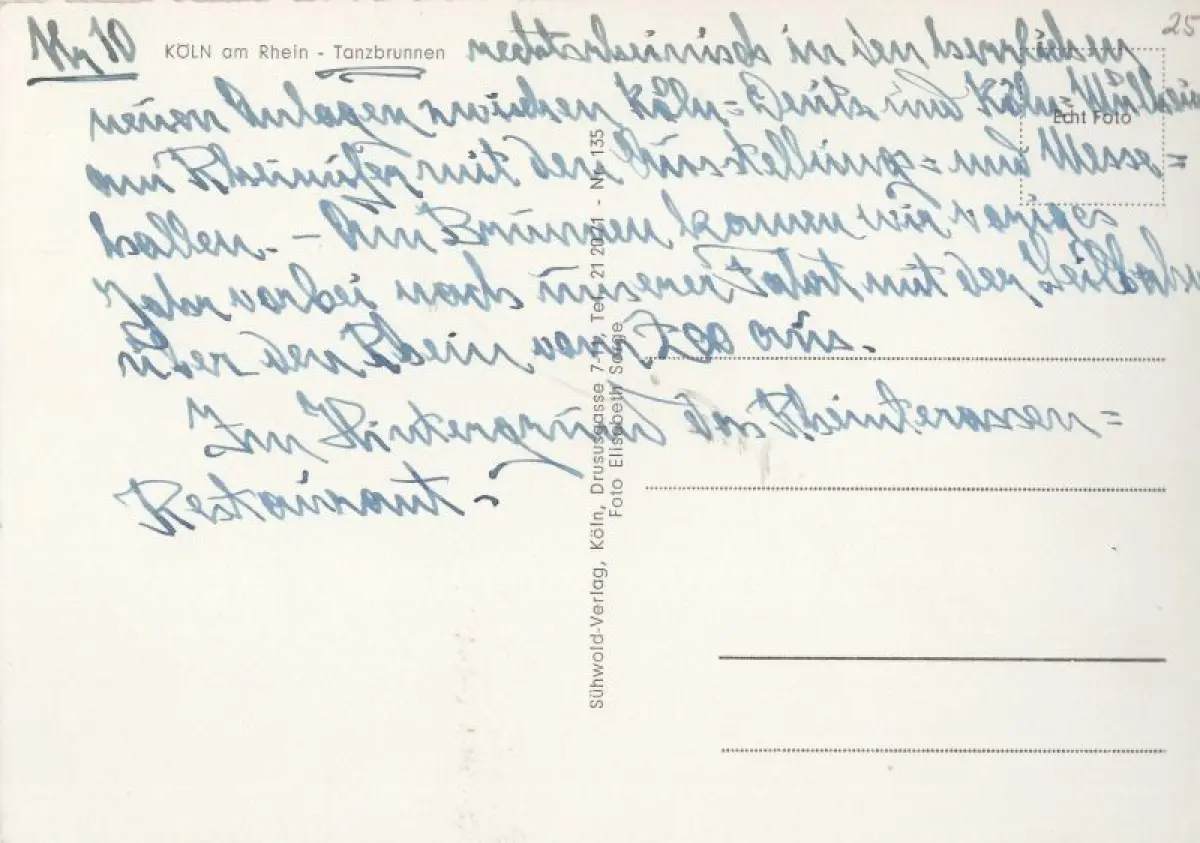 Nr 10
KÖLN am Rhein - Tanzbrunnen
25
Echt Foto
neuen Anlagen zwischen Köln=Deutz und Köln=Mülheim
am Rheinufer mit den Ausstellungs= und Messe=
hallen. - Am Brunnen
nach unserer Fahrt mit der Seilbahn
über den Rhein vom Zoo aus.
Im Hintergrund das Rheinterrassen=
Restaurant.
Sühwold-Verlag, Köln, Drususgasse 7-11, Tel. 21 20 71 - Nr. 135
Foto Elisabeth Sorge